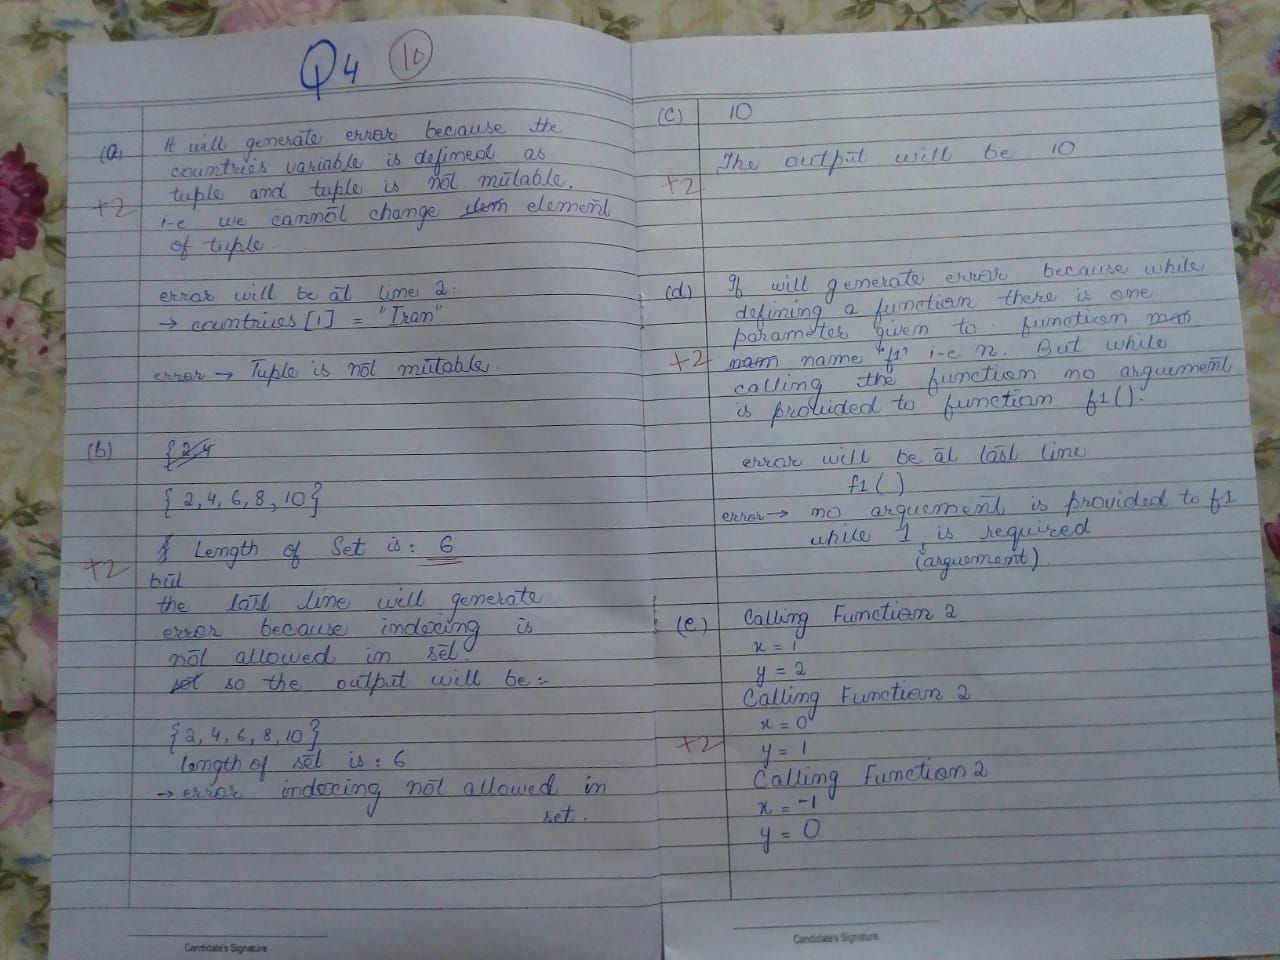 Q4 10
(a) It will generate error because the
countries variable is defined as
tuple and tuple is not mutable.
+2
i-e we cannot change element
of tuple.
error will be at line 2:
→ countries [1] = "Iran"
error → Tuple is not mutable.
(b) {2,4
{2,4,6,8,10}
Length of Set is: 6
+2
but
the last line will generate
error because indexing is
not allowed in set.
so the output will be:-
{2,4,6,8,10}
length of set is: 6
→ error indexing not allowed in
set.
Candidate's Signature
(c) 10
The output will be 10
+2
(d) It will generate error because while
defining a function there is one
parameter given to function
+2 name "f1" i-e n. But while
calling the function no arguement
is provided to function f1().
error will be at last line
f1()
error → no arguement is provided to f1
while 1 is required
(arguement)
(e) Calling Function 2
x = 1
y = 2
Calling Function 2
x = 0
+2
y = 1
Calling Function 2
x = -1
y = 0
Candidate's Signature